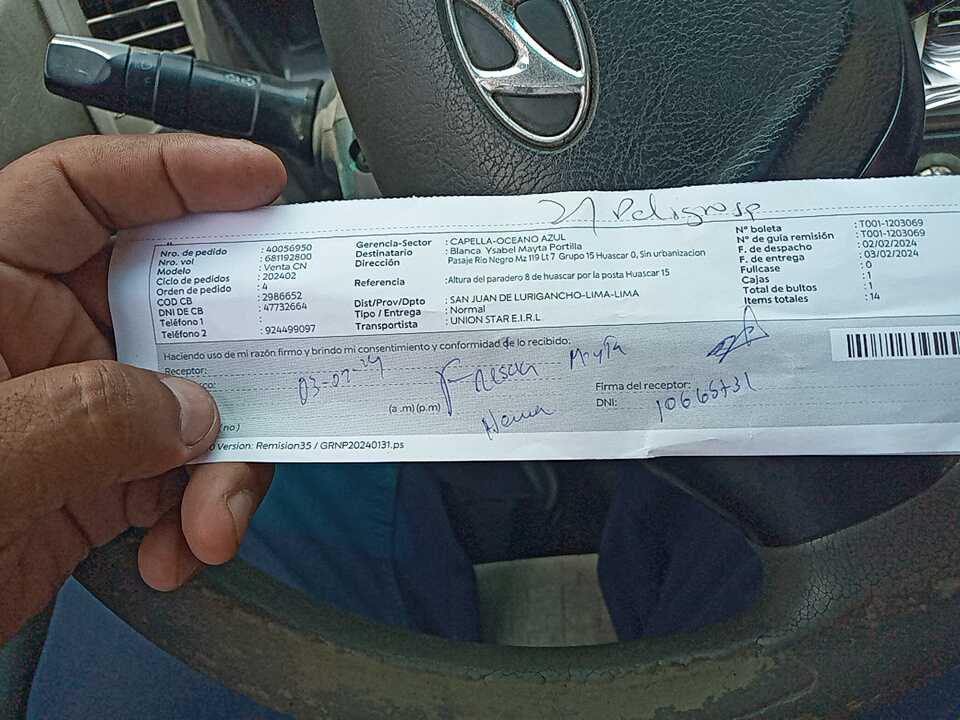 21 Peligrosa
Nro. de pedido : 40056950
Nro. vol : 681192800
Modelo : Venta CN
Ciclo de pedidos : 202402
Orden de pedido : 4
COD CB : 2986652
DNI DE CB : 47732664
Teléfono 1
Teléfono 2 : 924499097
Gerencia-Sector : CAPELLA-OCEANO AZUL
Destinatario : Blanca Ysabel Mayta Portilla
Dirección Pasaje Rio Negro Mz 119 Lt 7 Grupo 15 Huascar 0, Sin urbanizacion
Referencia : Altura del paradero 8 de huascar por la posta Huascar 15
Dist/Prov/Dpto : SAN JUAN DE LURIGANCHO-LIMA-LIMA
Tipo / Entrega : Normal
Transportista : UNION STAR E.I.R.L
N° boleta : T001-1203069
N° de guía remisión : T001-1203069
F. de despacho : 02/02/2024
F. de entrega : 03/02/2024
Fullcase : 0
Cajas : 1
Total de bultos : 1
Items totales : 14
Haciendo uso de mi razón firmo y brindo mi consentimiento y conformidad de lo recibido:
Receptor:
03-02-24
Mayta
(a .m) (p.m)
Firma del receptor:
DNI:
no )
Version: Remision35 / GRNP20240131.ps